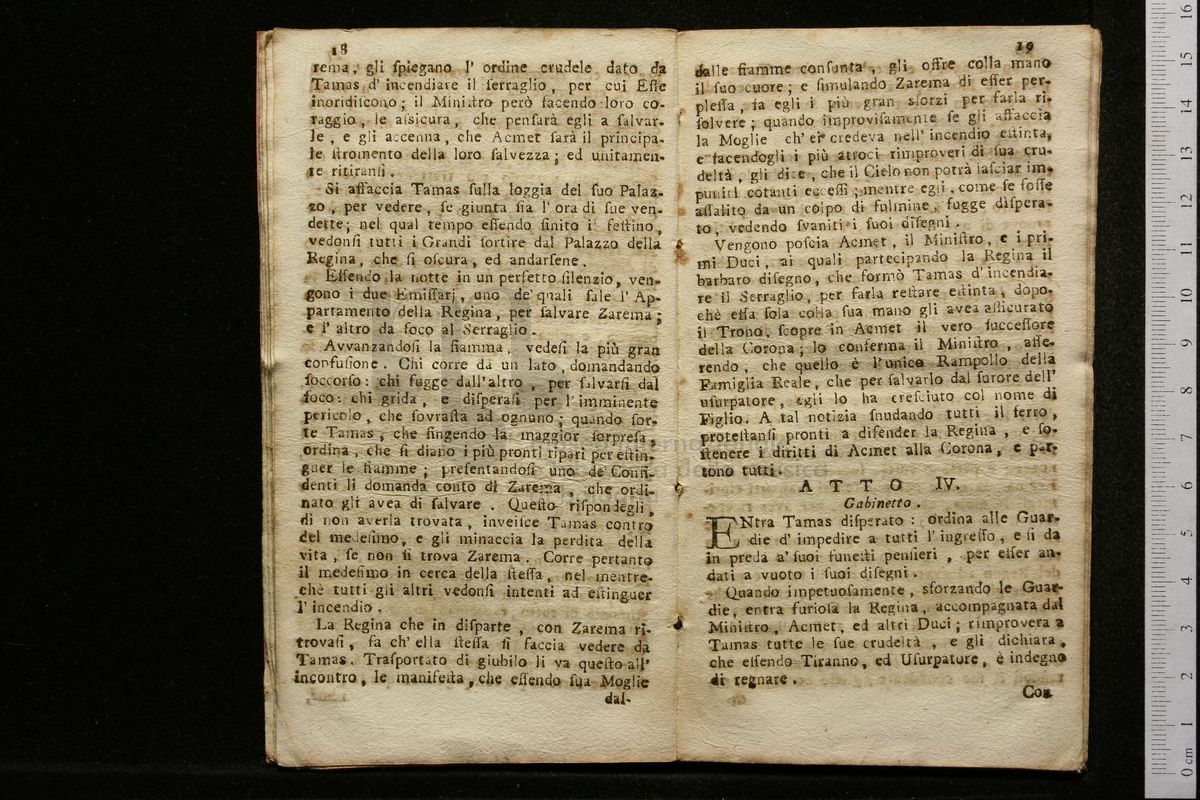 18
rema, gli ſpiegano l' ordine crudele dato da
Tamas d' incendiare il ſerraglio, per cui Eſſe
inoridiſcono; il Miniſtro però facendo loro co-
raggio, le aſsicura, che penſarà egli a ſalvar-
le, e gli accenna, che Acmet ſarà il principa-
le ſtromento della loro ſalvezza; ed unitamen-
te ritiranſi.
Si affaccia Tamas ſulla loggia del ſuo Palaz-
zo, per vedere, ſe giunta ſia l' ora di ſue ven-
dette; nel qual tempo eſſendo finito il feſtino,
vedonſi tutti i Grandi ſortire dal Palazzo della
Regina, che ſi oſcura, ed andarſene.
Eſſendo la notte in un perfetto ſilenzio, ven-
gono i due Emiſſarj, uno de' quali ſale l' Ap-
partamento della Regina, per ſalvare Zarema;
e l' altro da foco al Serraglio.
Avvanzandoſi la fiamma, vedeſi la più gran
confuſione. Chi corre da un lato, domandando
ſoccorſo: chi fugge dall' altro, per ſalvarſi dal
foco: chi grida, e diſperaſi per l' imminente
pericolo, che ſovraſta ad ognuno; quando ſor-
te Tamas, che fingendo la maggior ſorpreſa,
ordina, che ſi diano i più pronti ripari per eſtin-
guer le fiamme; preſentandoſi uno de' Confi-
denti li domanda conto di Zarema, che ordi-
nato gli avea di ſalvare. Queſto riſpondegli,
di non averla trovata, inveiſce Tamas contro
del medeſimo, e gli minaccia la perdita della
vita, ſe non ſi trova Zarema. Corre pertanto
il medeſimo in cerca della ſteſſa, nel mentre-
chè tutti gli altri vedonſi intenti ad eſtinguer
l' incendio.
La Regina che in diſparte, con Zarema ri-
trovaſi, fa ch' ella ſteſſa ſi faccia vedere da
Tamas. Traſportato di giubilo li va queſto all'
incontro, le manifeſta, che eſſendo ſua Moglie
dal-
19
dalle fiamme conſunta, gli offre colla mano
il ſuo cuore; e ſimulando Zarema di eſſer per-
pleſſa, fa egli i più gran sforzi per farla ri-
ſolvere; quando improviſamente ſe gli affaccia
la Moglie ch' ei credeva nell' incendio eſtinta,
e facendogli i più atroci rimproveri di ſua cru-
deltà, gli dice, che il Cielo non potrà laſciar im-
puniti cotanti ecceſſi; mentre egli, come ſe foſſe
aſſalito da un colpo di fulmine, fugge diſpera-
to, vedendo ſvaniti i ſuoi diſegni.
Vengono poſcia Acmet, il Miniſtro, e i pri-
mi Duci, ai quali partecipando la Regina il
barbaro diſegno, che formò Tamas d' incendia-
re il Serraglio, per farla reſtare eſtinta, dopo-
chè eſſa ſola colla ſua mano gli avea aſſicurato
il Trono, ſcopre in Acmet il vero ſucceſſore
della Corona; lo conferma il Miniſtro, aſſe-
rendo, che quello è l'unico Rampollo della
Famiglia Reale, che per ſalvarlo dal furore dell'
uſurpatore, egli lo ha creſciuto col nome di
Figlio. A tal notizia ſnudando tutti il ferro,
proteſtanſi pronti a difender la Regina, e ſo-
ſtenere i diritti di Acmet alla Corona, e par-
tono tutti.
ATTO IV.
Gabinetto.
ENtra Tamas diſperato: ordina alle Guar-
die d' impedire a tutti l' ingreſſo, e ſi da
in preda a' ſuoi funeſti penſieri, per eſſer an-
dati a vuoto i ſuoi diſegni.
Quando impetuoſamente, sforzando le Guar-
die, entra furioſa la Regina, accompagnata dal
Miniſtro, Acmet, ed altri Duci; rimprovera a
Tamas tutte le ſue crudeltà, e gli dichiara,
che eſſendo Tiranno, ed Uſurpatore, è indegno
di regnare.
Con
0 cm 1 2 3 4 5 6 7 8 9 10 11 12 13 14 15 16